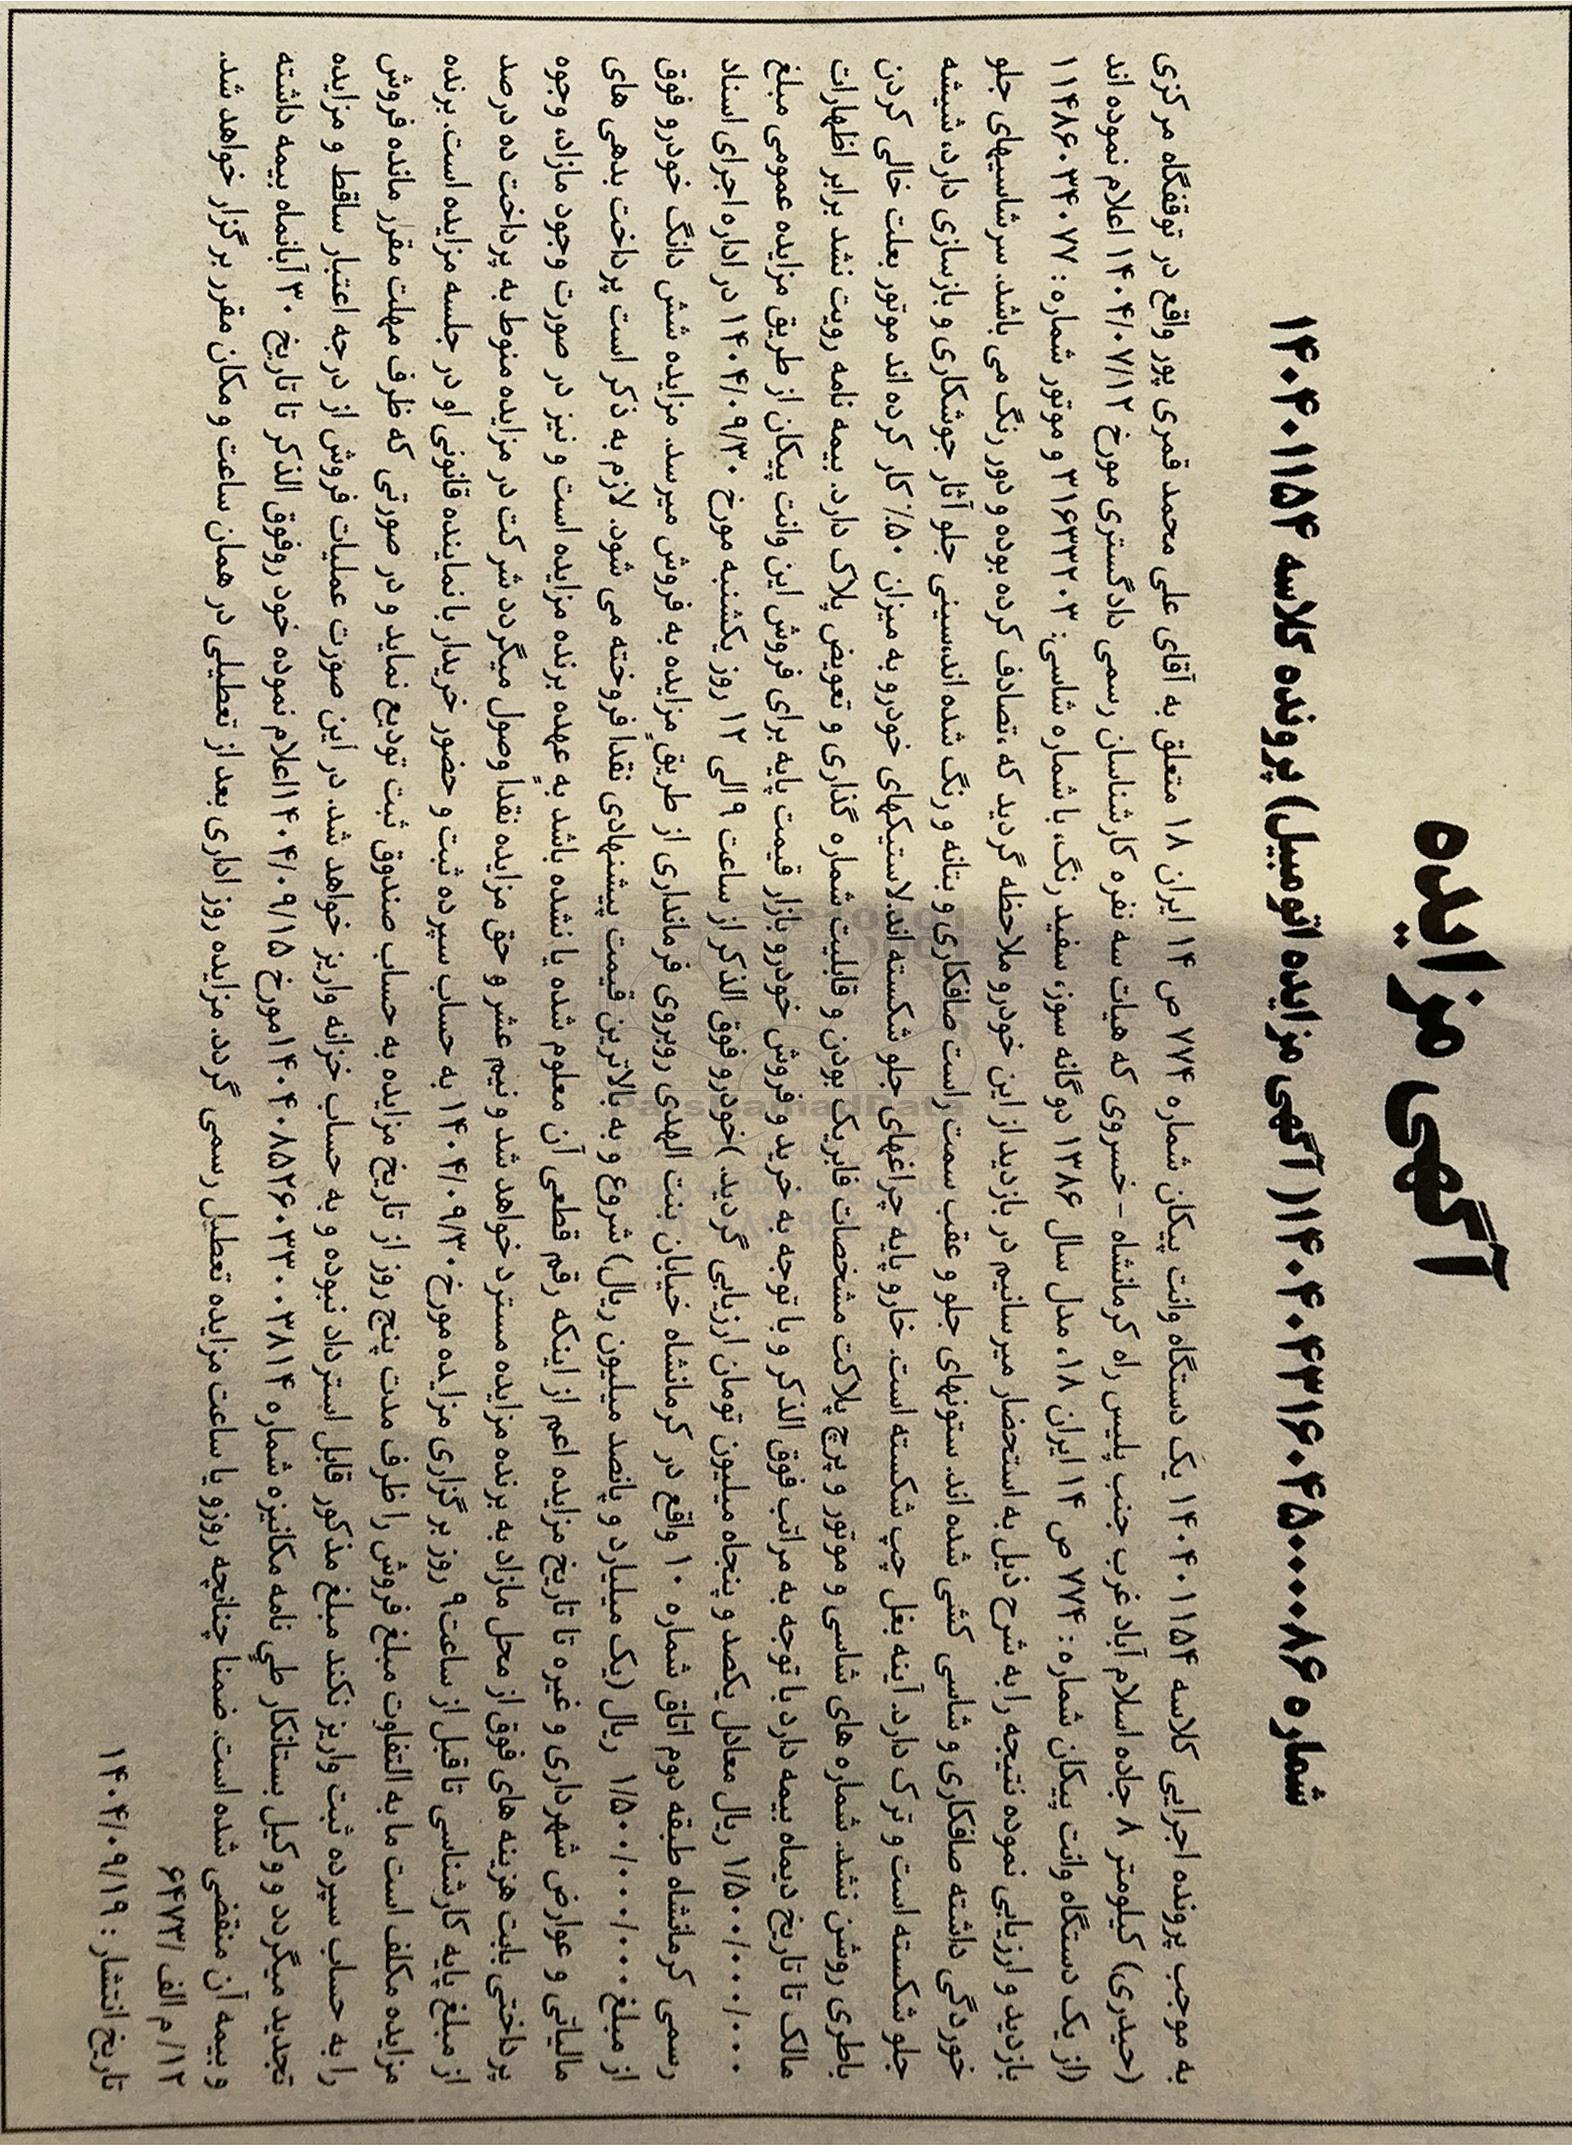 آگهی مزایده
شماره ۱۴۰۴۰۴۳۱۶۰۴۵۰۰۰۰۸۶( آگهی مزایده اتومبیل) پرونده کلاسه ۱۴۰۴۰۱۱۵۴
به موجب پرونده اجرایی کلاسه ۱۴۰۴۰۱۱۵۴ یک دستگاه وانت پیکان شماره ۷۷۴ ص ۱۴ ایران ۱۸ متعلق به آقای علی محمد قمری پور واقع در توقفگاه مرکزی
(حیدری) کیلومتر ۸ جاده اسلام آباد غرب جنب پلیس راه کرمانشاه - خسروی که هیات سه نفره کارشناسان رسمی دادگستری مورخ ۱۴۰۴/۰۷/۱۲ اعلام نموده اند
(از یک دستگاه وانت پیکان شماره : ۷۷۴ ص ۱۴ ایران ۱۸، مدل سال ۱۳۸۶ دوگانه سوز، سفید رنگ، با شماره شاسی: ۳۱۶۳۳۲۰۳ و موتور شماره : ۱۱۴۸۶۰۳۴۰۷۷
بازدید و ارزیابی نموده نتیجه را به شرح ذیل به استحضار میرسانیم در بازدید از این خودرو ملاحظه گردید که ،تصادف کرده بوده و دور رنگ می باشد. سرشاسیهای جلو
خوردگی داشته صافکاری و شاسی کشی شده اند. ستونهای جلو و عقب سمت راست صافکاری و بتانه و رنگ شده اند،سینی جلو آثار جوشکاری و بازسازی دارد، شیشه
جلو شکسته است و ترک دارد. آینه بغل چپ شکسته است. خارو پایه چراغهای جلو شکسته اند.لاستیکهای خودرو به میزان ۵۰٪ کار کرده اند موتور بعلت خالی کردن
باطری روشن نشد. شماره های شاسی و موتور و پرچ پلاکت مشخصات فابریک بودن و قابلیت شماره گذاری و تعویض پلاک دارد. بیمه نامه رویت نشد برابر اظهارات
مالک تا تاریخ دیماه بیمه دارد با توجه به مراتب فوق الذکر و با توجه به خرید و فروش خودرو بازار قیمت پایه برای فروش این وانت پیکان از طریق مزایده عمومی مبلغ
۱/۵۰۰/۰۰۰/۰۰۰ ریال معادل یکصد و پنجاه میلیون تومان ارزیابی گردید. )خودرو فوق الذکر از ساعت ۹ الی ۱۲ روز یکشنبه مورخ ۱۴۰۴/۰۹/۳۰ در اداره اجرای اسناد
رسمی کرمانشاه طبقه دوم اتاق شماره ۱۰ واقع در کرمانشاه خیابان بنت الهدی روبروی فرمانداری از طریق مزایده به فروش میرسد. مزایده شش دانگ خودرو فوق
از مبلغ ۱/۵۰۰/۰۰۰/۰۰۰ ریال (یک میلیارد و پانصد میلیون ریال) شروع و به بالاترین قیمت پیشنهادی نقدا فروخته می شود. لازم به ذکر است پرداخت بدهی های
مالیاتی و عوارض شهرداری و غیره تا تاریخ مزایده اعم از اینکه رقم قطعی آن معلوم شده یا نشده باشد به عهده برنده مزایده است و نیز در صورت وجود مازاد، وجوه
پرداختی بابت هزینه های فوق از محل مازاد به برنده مزایده مسترد خواهد شد و نیم عشر و حق مزایده نقداً وصول میگردد شرکت در مزایده منوط به پرداخت ده درصد
از مبلغ پایه کارشناسی تا قبل از ساعت ۹ روز برگزاری مزایده مورخ ۱۴۰۴/۰۹/۳۰ به حساب سپرده ثبت و حضور خریدار یا نماینده قانونی او در جلسه مزایده است. برنده
مزایده مکلف است ما به التفاوت مبلغ فروش را ظرف مدت پنج روز از تاریخ مزایده به حساب صندوق ثبت تودیع نماید و در صورتی که ظرف مهلت مقرر مانده فروش
را به حساب سپرده ثبت واریز نکند مبلغ مذکور قابل استرداد نبوده و به حساب خزانه واریز خواهد شد. در این صورت عملیات فروش از درجه اعتبار ساقط و مزایده
تجدید میگردد و وکیل بستانکار طی نامه مکانیزه شماره ۱۴۰۴۰۸۵۲۶۰۳۳۰۰۳۸۱۴مورخ ۱۴۰۴/۰۹/۱۵اعلام نموده خود روفوق الذکر تا تاریخ ۳۰ آبانماه بیمه داشته
و بیمه آن منقضی شده است. ضمنا چنانچه روزو یا ساعت مزایده تعطیل رسمی گردد. مزایده روز اداری بعد از تعطیلی در همان ساعت و مکان مقرر برگزار خواهد شد.
۱۲/ م الف /۶۴۷۳
تاریخ انتشار : ۱۴۰۴/۰۹/۱۹